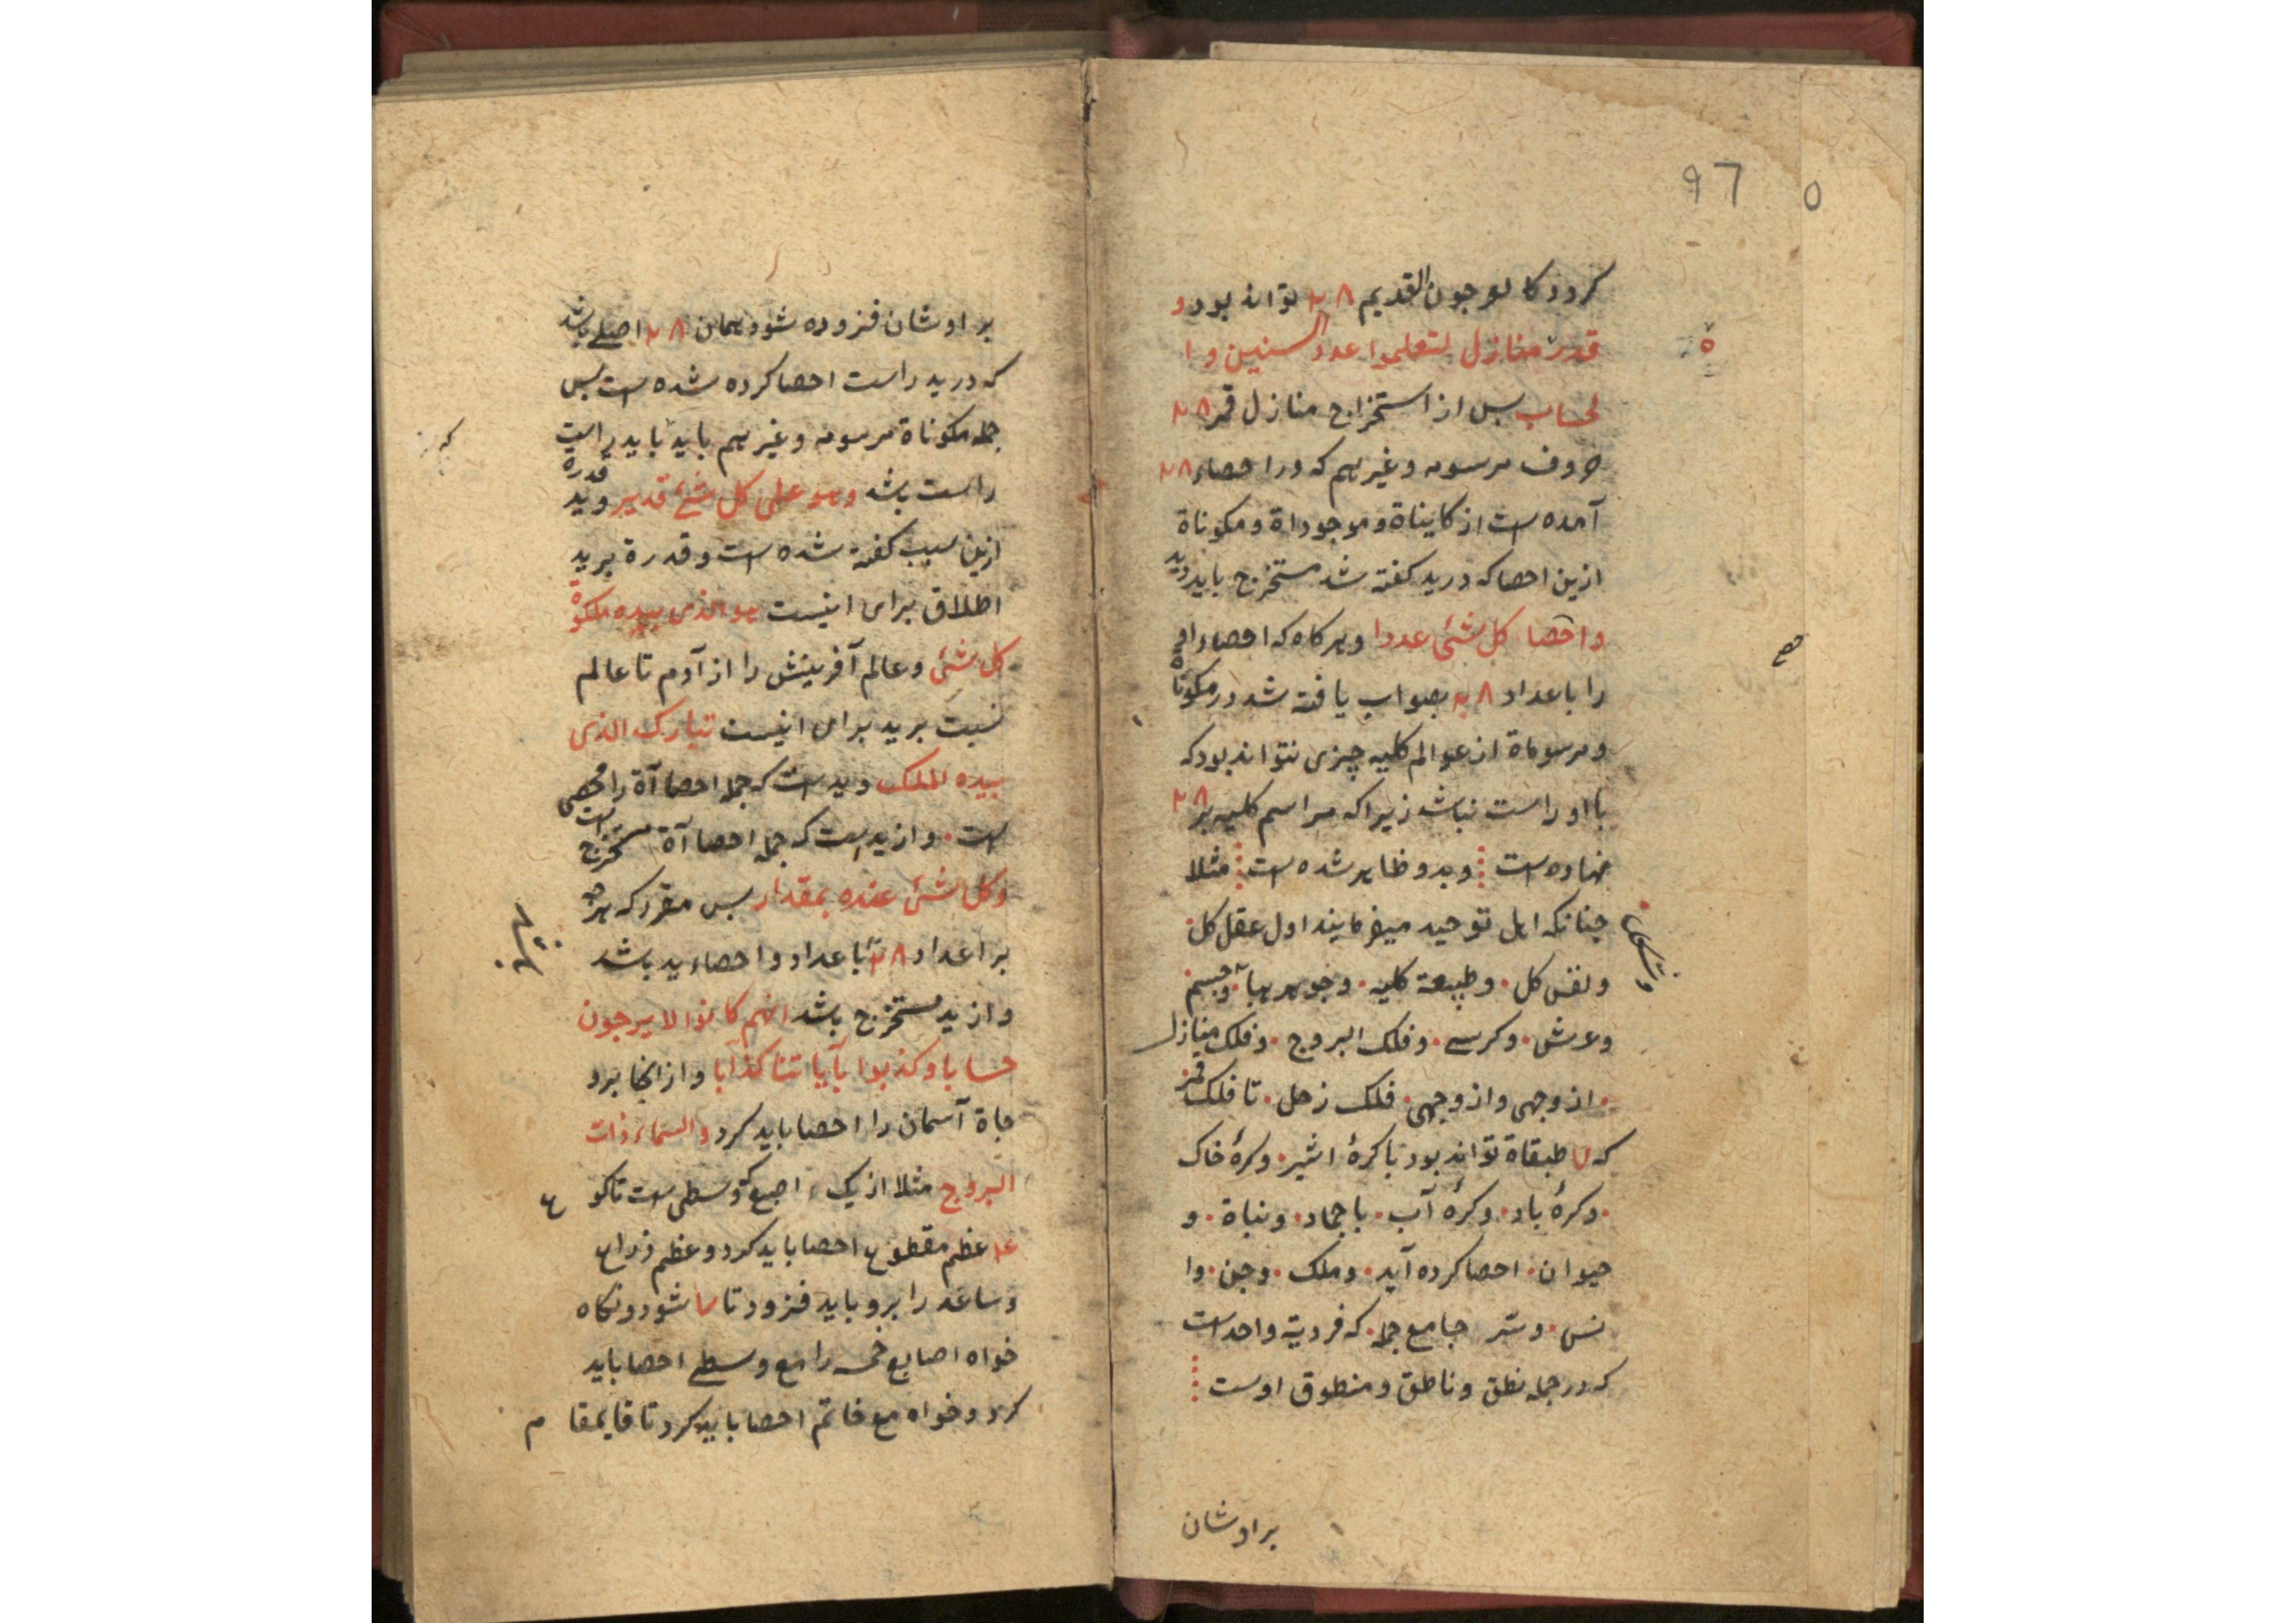 97 5
کردد کالعرجون القدیم ۲۸ تواند بود و
قدره منازل لتعلموا عدد السنین و ا
لحساب بس از استخراج منازل قمر ۲۸
حروف مرسومه و غیرهم که در احصاء ۲۸
آمده است از کایناة و موجوداة و مکوناة
ازین احصا که در ید کفته شد مستخرج باید دید
واحصا کل شئی عددا و هر کاه که احصاء او
را با عداد ۲۸ بصواب یافته شد در مکوناة
و مرسوماة از عوالم کلیه چیزی نتواند بود که
با او راست نباشد زیرا که مراسم کلیه بر ۲۸
نهاده است و بدو ظاهر شده است مثلا
جنانکه اهل توحید میفرمایند اول عقل کل
و نفس کل و طبیعة کلیه و جوهر هبا و جسم
و عرش و کرسی و فلک البروج و فلک منازل
از وجهی و از وجهی فلک زحل تا فلک قمر
که ۷ طبقاة تواند بود با کرهٔ اثیر و کرهٔ خاک
و کرهٔ باد و کرهٔ آب با جماد و نباة و
حیوان احصا کرده آید و ملک و جن و ا
نس و سّر جامع جمله که فردیة واحد است
که در جمله نطق و ناطق و منطوق اوست
بر اوشان
بر اوشان فزوده شود همان ۲۸ اصلی باشد
که در ید راست احصا کرده شده است بس
جمله مکوناة مرسومه و غیرهم باید با ید راست
راست باشد وهو علی کل شئ قدیر و ید قدرة
ازین سبب کفته شده است و قدرة بر ید
اطلاق برای اینست هو الذی بیده ملکوة
کل شئی و عالم آفرینش را از آدم تا عالم
نسبت بر ید برای اینست تبارک الذی
بیده الملک و ید است که جمله احصا آة را محصی
است و از ید است که جمله احصا آة مستخرج است
و کل شئ عنده بمقدار بس مقرر که هرجه
بر اعداد ۲۸ با عداد و احصاء ید باشد
و از ید مستخرج باشد انهم کانوا لا یرجون
حسابا و کذبوا بآیاتنا کذابا و از انجا برد
جاة آسمان را احصا باید کرد والسماء ذات
البروج مثلا از یک اصبع که وسطی است تا کو ع
عظم مقطوع احصا باید کرد و عظم ذراع
و ساعد را برو باید فزود تا ۷ شود و نکاه
خواه اصابع خمسه را مع وسطی احصا باید
کرد و خواه مع خاتم احصا باید کرد تا قایمقا م